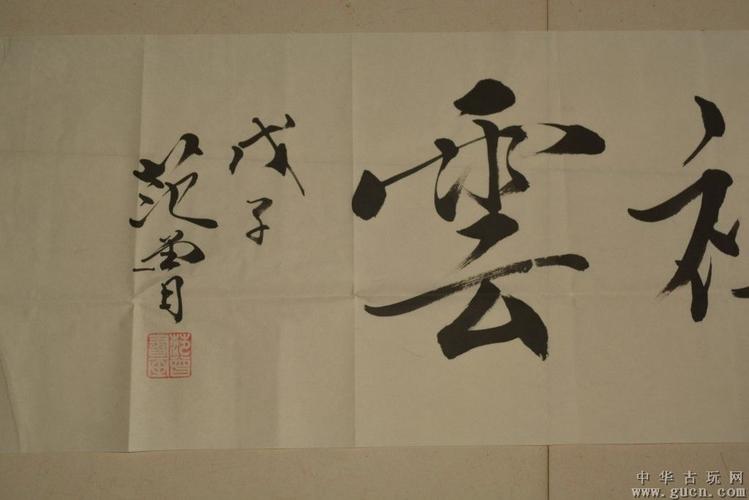 雲
戊子
范曾
中华古玩网
www.gucn.com